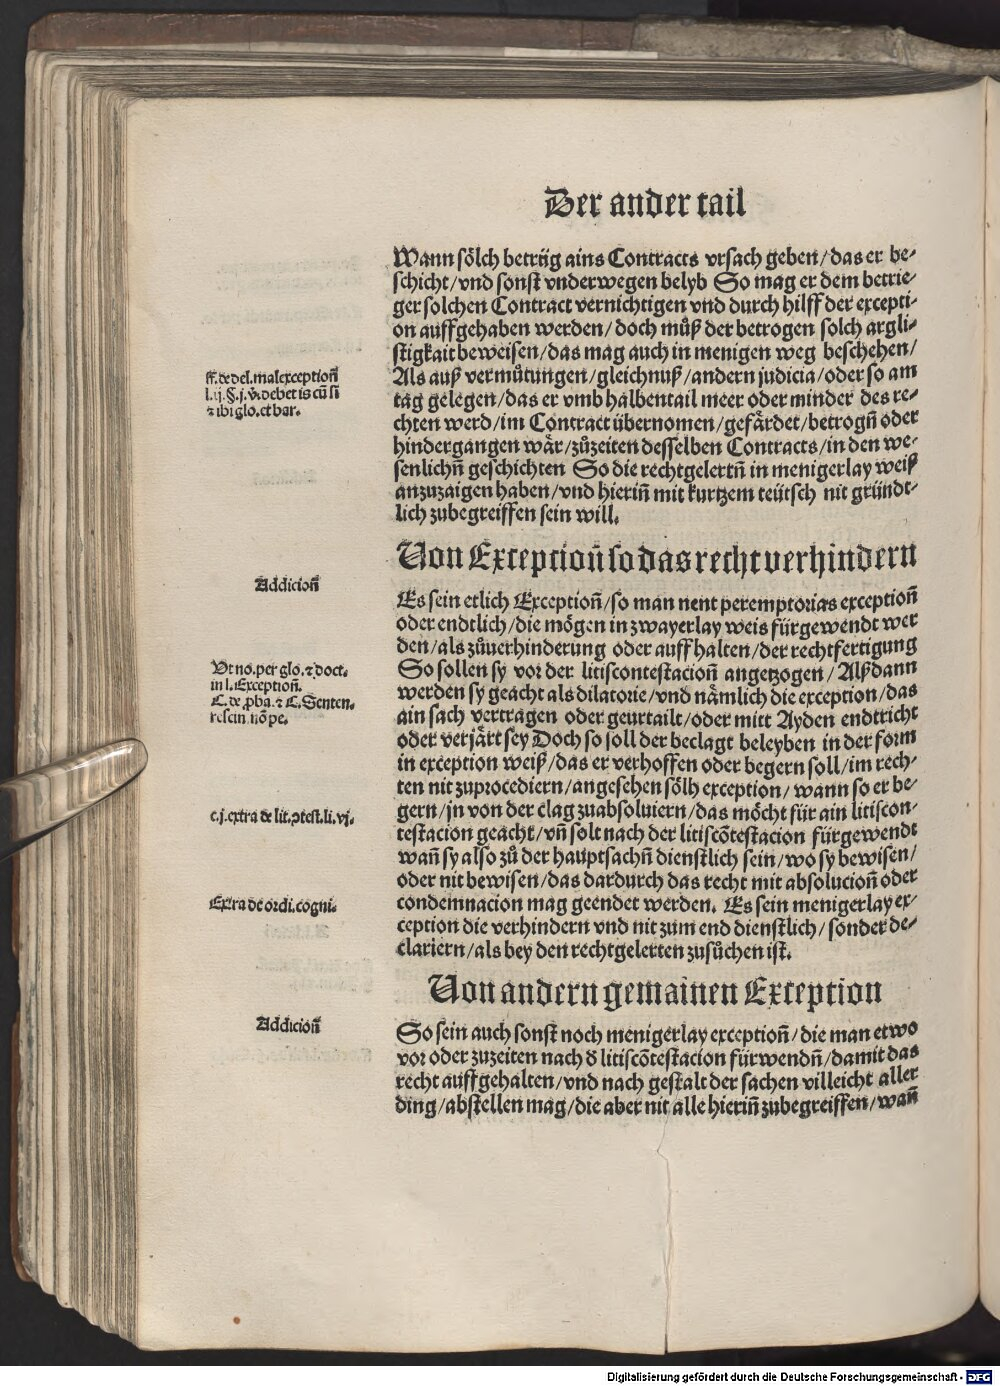 Der ander tail
Wann sölch betrüg ains Contracts vrsach geben/das er be-
schicht/vnd sonst vnderwegen belyb So mag er dem betrie-
ger solchen Contract vernichtigen vnd durch hilff der excepti-
on auffgehaben werden/doch můß der betrogen solch argli-
stigkait beweisen/das mag auch in menigen weg beschehen/
Als auß vermůtungen/gleichnuß/andern judicia/oder so am
tag gelegen/das er vmb halbentail meer oder minder des re-
chten werd/im Contract übernomen/gefärdet/betrogñ oder
hindergangen wär/zůzeiten desselben Contracts/in den we-
senlichñ geschichten So die rechtgelertñ in menigerlay weiß
anzuzaigen haben/vnd hieriñ mit kurtzem teütsch nit gründt-
lich zubegreiffen sein will.
ff. de del. mal exceptioñ
l.ij.§.j.ꝟ. debet is cū si
⁊ ibi glo. et bar.
Von Exceptioñ so das recht verhindern
Addicioñ
Es sein etlich Exceptioñ/so man nent peremptorias exceptioñ
oder endtlich/die mögen in zwayerlay weis fürgewendt wer
den/als zůuerhinderung oder auffhalten/der rechtfertigung
So sollen sy vor der litiscontestacioñ angetzogen/Alßdann
werden sy geacht als dilatorie/vnd nämlich die exception/das
ain sach vertragen oder geurtailt/oder mitt Ayden endtricht
oder verjärt sey Doch so soll der beclagt beleyben in der form
in exception weiß/das er verhoffen oder begern soll/im rech-
ten nit zuprocediern/angesehen sölh exception/wann so er be-
gern/jn von der clag zuabsoluiern/das möcht für ain litiscon-
testacion geacht/vñ solt nach der litiscōtestacion fürgewendt
wañ sy also zů der hauptsachñ dienstlich sein/wo sy bewisen/
oder nit bewisen/das dardurch das recht mit absolucioñ oder
condemnacion mag geendet werden. Es sein menigerlay ex-
ception die verhindern vnd nit zum end dienstlich/sonder de-
clariern/als bey den rechtgelerten zusůchen ist.
Vt no. per glo. ⁊ doct.
in l. Exceptioñ.
C. de ꝓba. ⁊ C. Senten.
rescin. nō pe.
c.j. extra de lit. ꝯtest. li. vj.
Extra de ordi. cogni.
Von andern gemainen Exception
Addicioñ
So sein auch sonst noch menigerlay exceptioñ/die man etwo
vor oder zuzeiten nach ð litiscōtestacion fürwendñ/damit das
recht auffgehalten/vnd nach gestalt der sachen villeicht aller
ding/abstellen mag/die aber nit alle hieriñ zubegreiffen/wañ
Digitalisierung gefördert durch die Deutsche Forschungsgemeinschaft - DFG